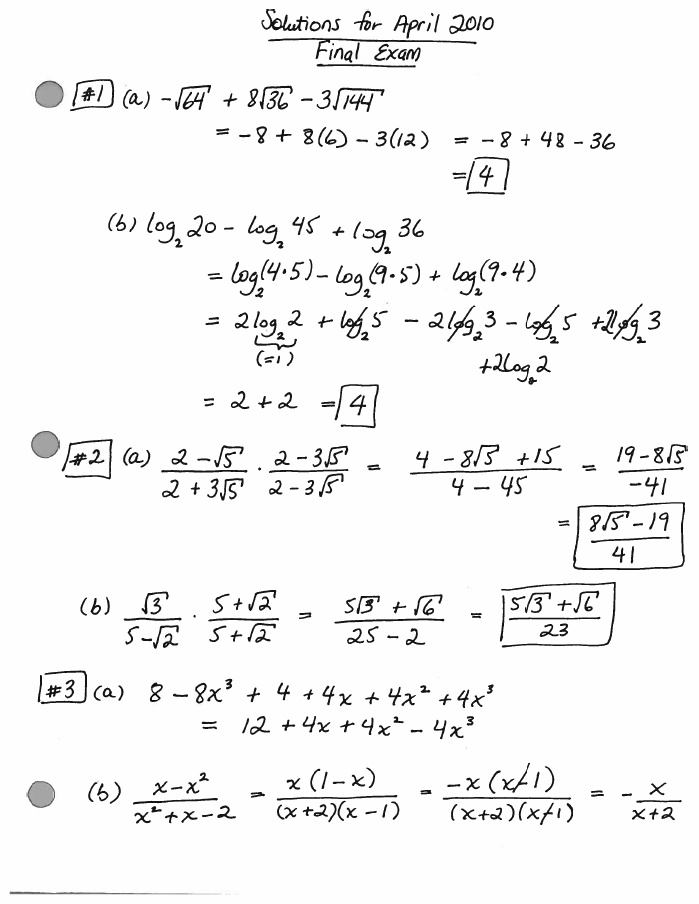 Solutions for April 2010
Final Exam
#1 (a) -√64 + 8√36 - 3√144
= -8 + 8(6) - 3(12) = -8 + 48 - 36
= 4
(b) log₂ 20 - log₂ 45 + log₂ 36
= log₂(4·5) - log₂(9·5) + log₂(9·4)
= 2log₂ 2 + log₂ 5 - 2log₂ 3 - log₂ 5 + 2log₂ 3
(=1) +2log₂ 2
= 2 + 2 = 4
#2 (a) (2 - √5)/(2 + 3√5) · (2 - 3√5)/(2 - 3√5) = (4 - 8√5 + 15)/(4 - 45) = (19 - 8√5)/(-41)
= (8√5 - 19)/41
(b) √3/(5 - √2) · (5 + √2)/(5 + √2) = (5√3 + √6)/(25 - 2) = (5√3 + √6)/23
#3 (a) 8 - 8x³ + 4 + 4x + 4x² + 4x³
= 12 + 4x + 4x² - 4x³
(b) (x - x²)/(x² + x - 2) = x(1 - x)/((x+2)(x - 1)) = -x(x - 1)/((x+2)(x - 1)) = - x/(x+2)